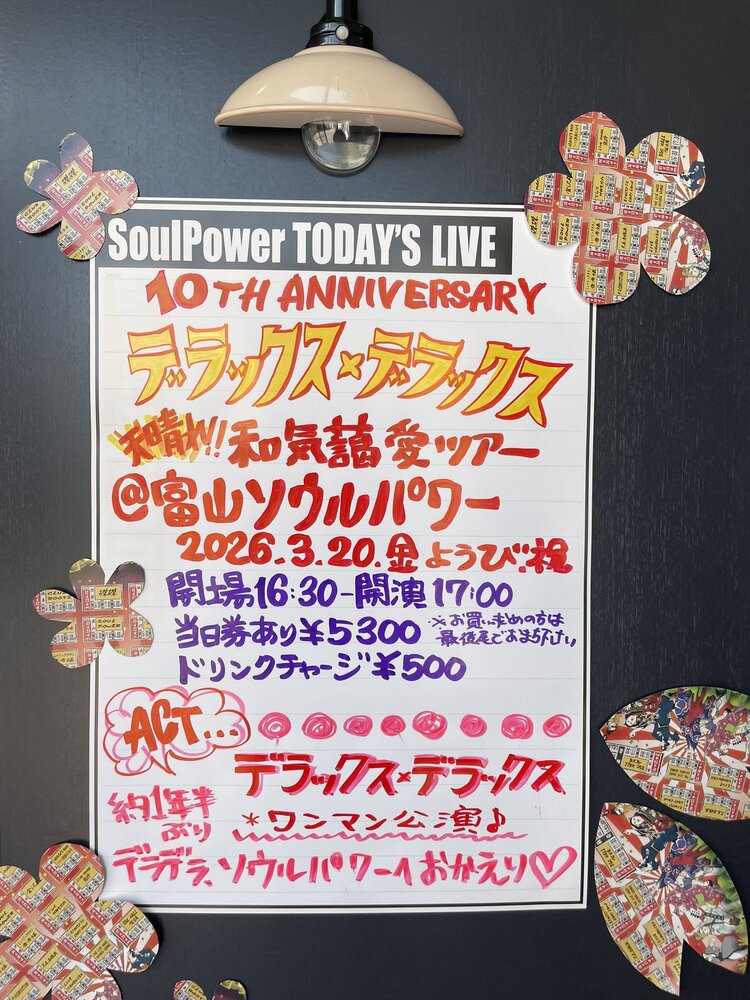 SoulPower TODAY'S LIVE
DATE
10TH ANNIVERSARY
デラックス×デラックス
天晴れ!!和気藹愛ツアー
@富山ソウルパワー
2026.3.20.金ようび.祝
開場16:30-開演17:00
当日券あり¥5300
※お買い求めの方は
最後尾でおまち下さい
ドリンクチャージ¥500
ACT...
デラックス×デラックス
約1年半
ぶり
*ワンマン公演♪
デラデラ、ソウルパワーへおかえり♡
SOUL
POWER